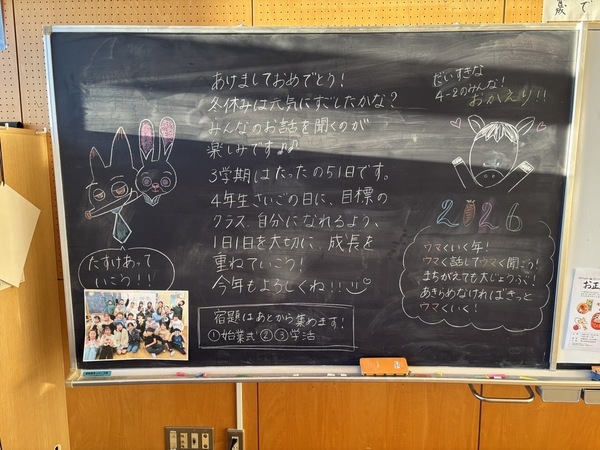 あけましておめでとう!
冬休みは元気にすごしたかな?
みんなのお話を聞くのが
楽しみです♪♪
3学期はたったの51日です。
4年生さいごの日に、目標の
クラス、自分になれるよう、
1日1日を大切に、成長を
重ねていこう!
今年もよろしくね!!
宿題はあとから集めます!
①始業式②③学活
たすけあって
いこう!!
だいすきな
4-2のみんな!
おかえり!!
2026
ウマくいく年!
ウマく話してウマく聞こう!
まちがえても大じょうぶ!
あきらめなければきっと
ウマくいく!
お正